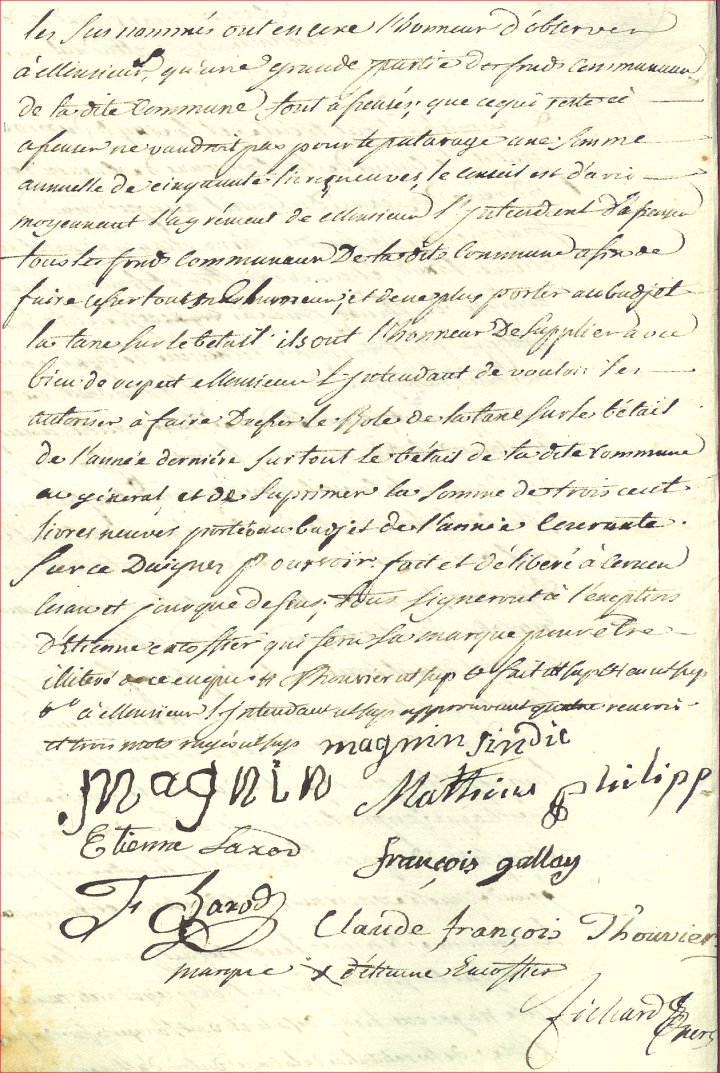 les susnommés ont encore l'honneur d'observer
à Monsieur, qu'une grande partie des fonds communaux
de la dite Commune sont afensés; que ce qui reste à
afenser ne vaudroit pas pour le paturage une somme
annuelle de cinquante livres neuves, le conseil est d'avis
moyennant l'agrément de Monsieur l'Intendent d'afenser
tous les fonds Communaux De la dite Commune afin de
faire cesser tout et de ne plus porter au budjet
la taxe sur le bétail ils ont l'honneur De Supplier avec
bien de respect Monsieur l'Intendant de vouloir les
autoriser à faire Dresser le Role de la taxe sur le bétail
de l'année derniére sur tout le bétail de la dite Commune
en général et de Suprimer la Somme de trois cent
livres neuves porté au budjet de l'année Courante.
Sur ce Daignes Pourvoir. fait et délibéré à
les an et jour que dessus; tous signeront à l'exeption
d'Etienne qui fera sa marque pour être
illiteré Thouvier
à Monsieur l'Intendant approuvant quatre renvois
et trois mots rayés
magnin sindic
Magnin Mathieu philipp
Etienne Saxod
françois gallay
F Saxod
Claude françois Thouvier
marque x d'étienne
Richard